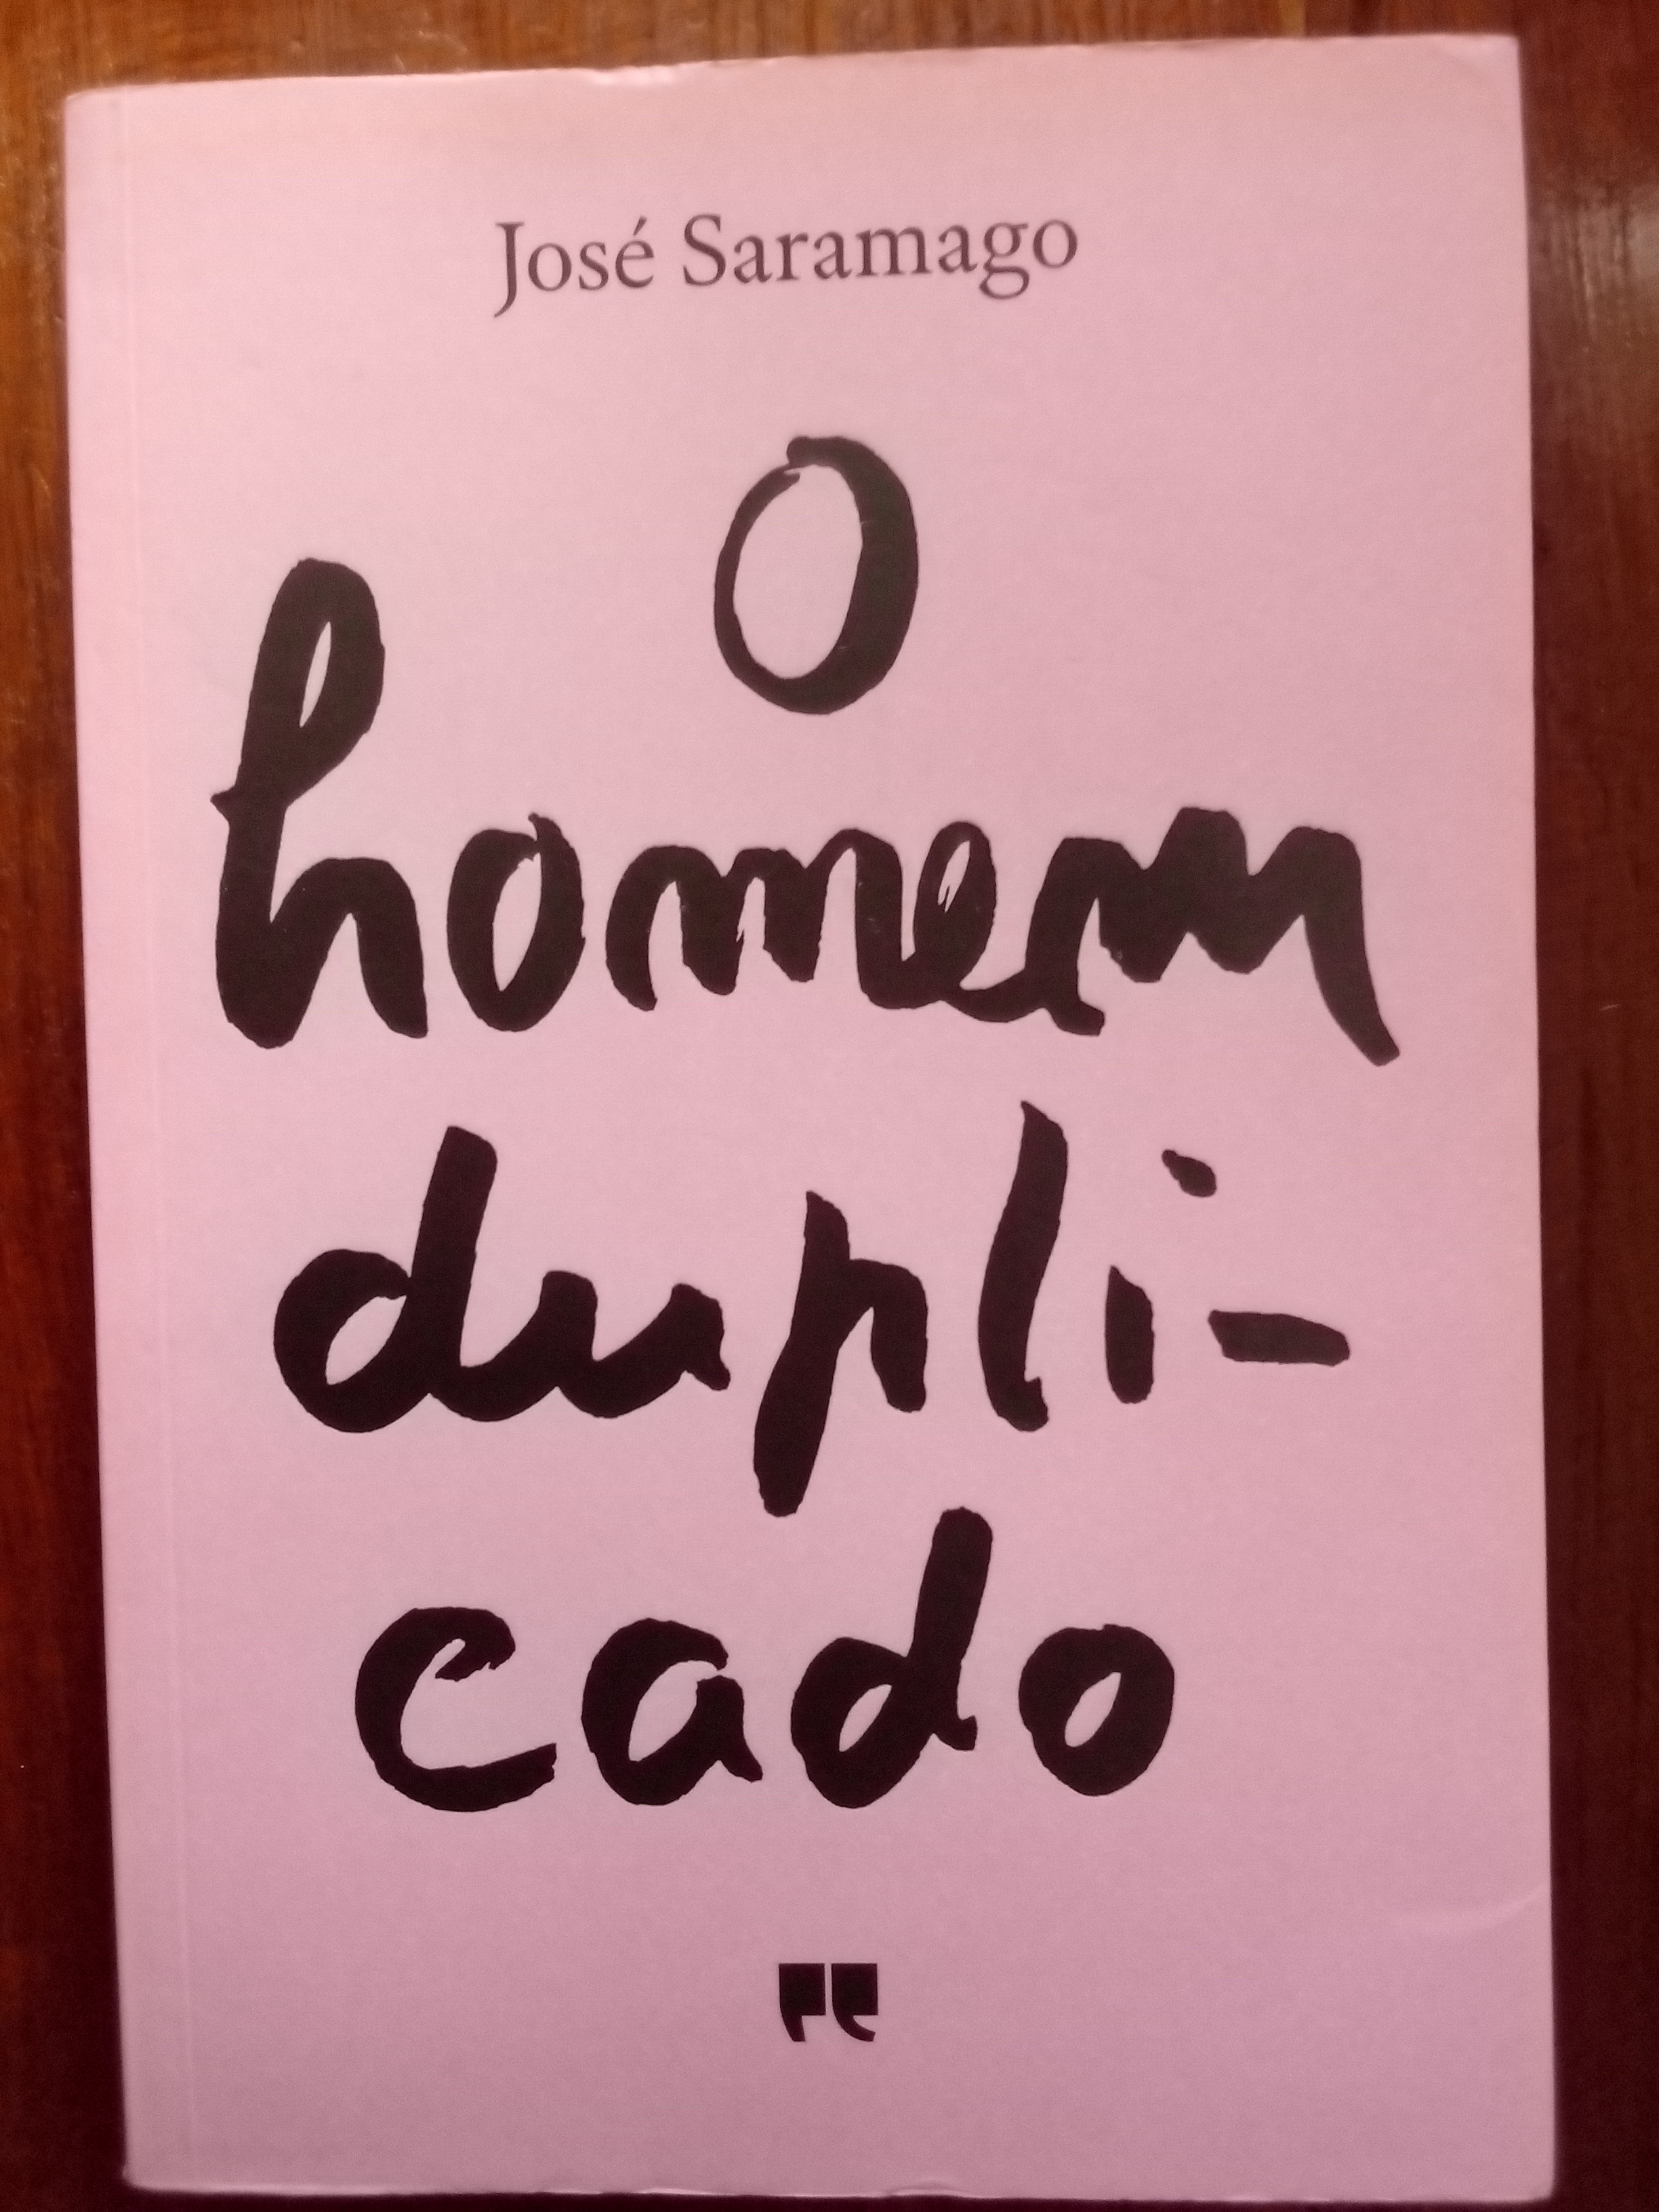 José Saramago
O
homem
dupli-
cado